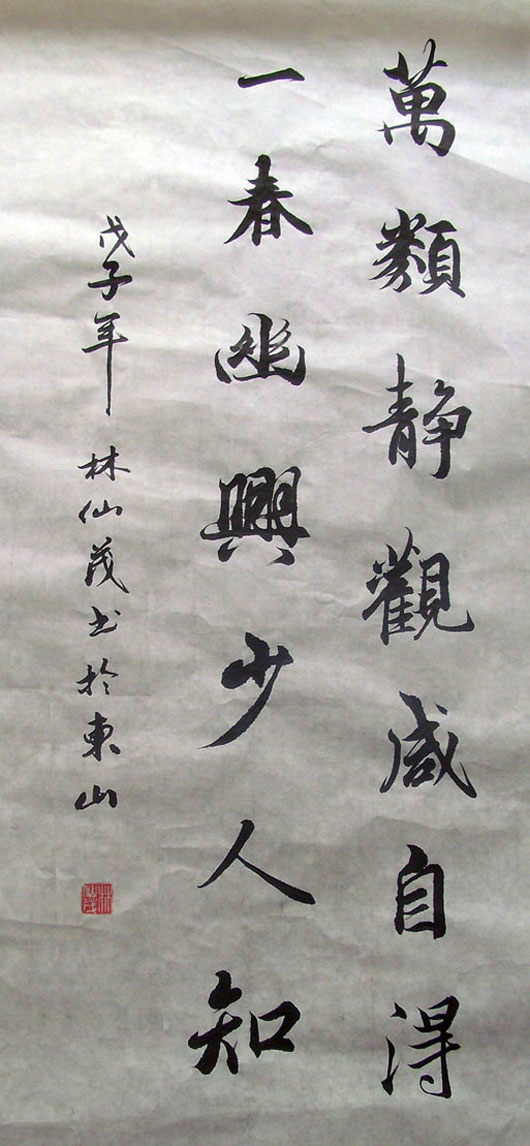 萬類静觀咸自得
一春幽興少人知
戊子年 林仙茂书於東山
林仙茂